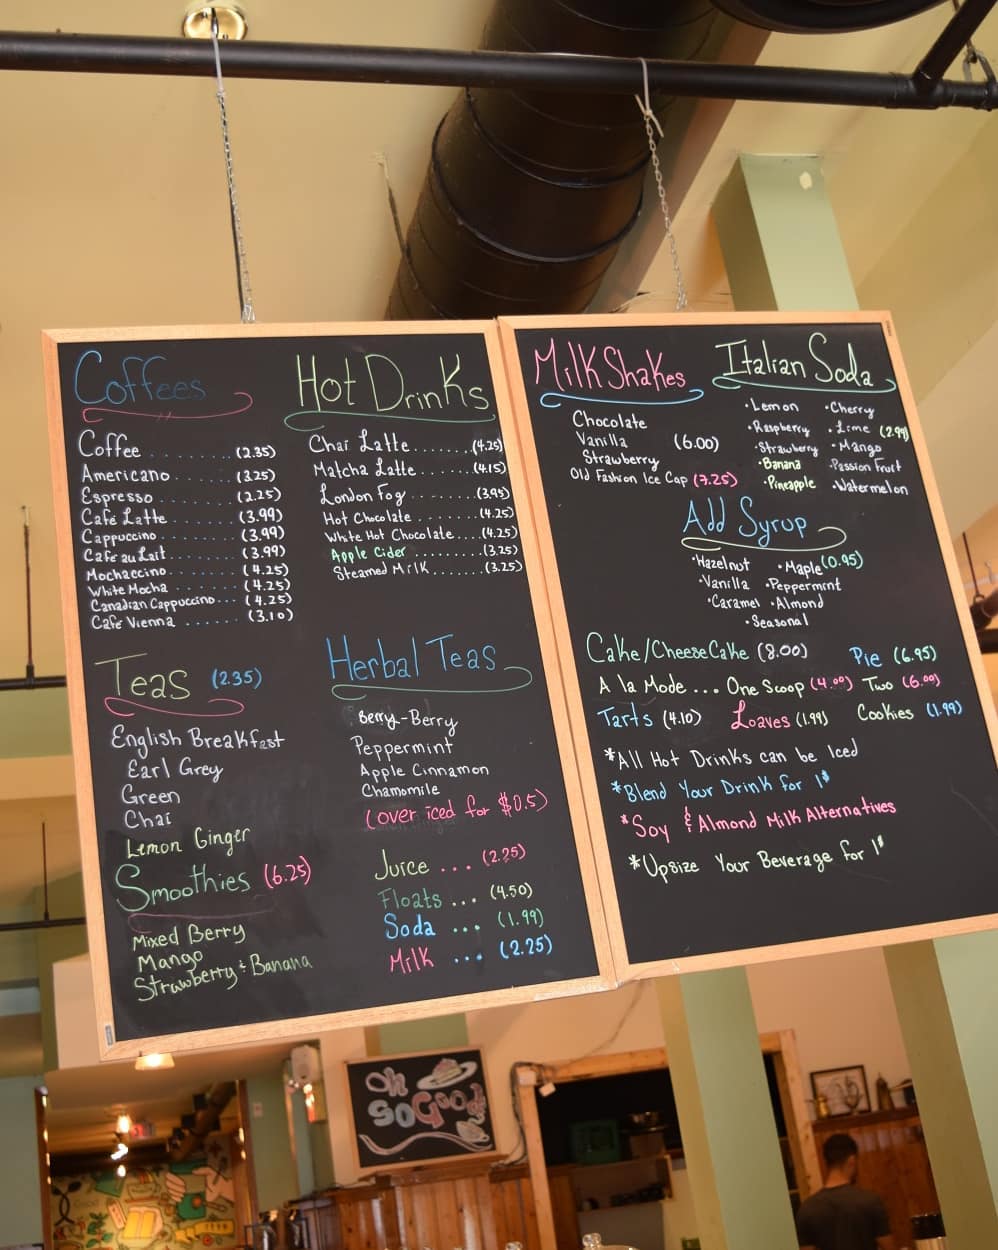 Coffees
Coffee ......... (2.35)
Americano ...... (3.25)
Espresso ....... (2.25)
Café Latte ....... (3.99)
Cappuccino ....... (3.99)
Café au Lait ....... (3.99)
Mochaccino ....... (4.25)
White Mocha ....... (4.25)
Canadian Cappuccino... (4.25)
Café Vienna ...... (3.10)
Teas (2.35)
English Breakfast
Earl Grey
Green
Chai
Lemon Ginger
Smoothies (6.25)
Mixed Berry
Mango
Strawberry & Banana
Hot Drinks
Chai Latte ....... (4.25)
Matcha Latte ...... (4.15)
London Fog ......... (3.95)
Hot Chocolate ......... (4.25)
White Hot Chocolate.... (4.25)
Apple Cider ......... (3.25)
Steamed Milk ....... (3.25)
Herbal Teas
Berry-Berry
Peppermint
Apple Cinnamon
Chamomile
(over iced for $0.5)
Juice .... (2.25)
Floats ... (4.50)
Soda ... (1.99)
Milk ... (2.25)
MilkShakes
Chocolate
Vanilla (6.00)
Strawberry
Old Fashion Ice Cap (7.25)
Italian Soda
•Lemon •Cherry
•Raspberry •Lime (2.99)
•Strawberry •Mango
•Banana •Passion Fruit
•Pineapple •Watermelon
Add Syrup
•Hazelnut •Maple (0.95)
•Vanilla •Peppermint
•Caramel •Almond
•Seasonal
Cake/CheeseCake (8.00) Pie (6.95)
A la Mode ... One Scoop (4.00) Two (6.00)
Tarts (4.10) Loaves (1.99) Cookies (1.99)
*All Hot Drinks can be Iced
*Blend Your Drink for 1$
*Soy & Almond Milk Alternatives
*Upsize Your Beverage for 1$
Oh
So Good